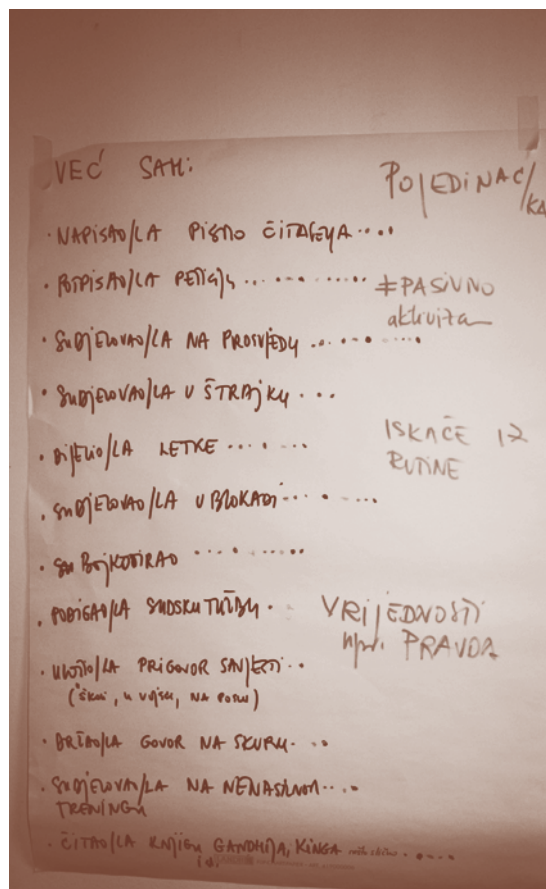 VEĆ SAM:
POJEDINAC/
KA
· NAPISAO/LA PISMO ČITATELJA .....
· POTPISAO/LA PETICIJU ............
≠PASIVNO
aktivizam
· SUDJELOVAO/LA NA PROSVJEDU ..........
· SUDJELOVAO/LA U ŠTRAJKU ...
ISKAČE IZ
RUTINE
· DIJELIO/LA LETKE .......
· SUDJELOVAO/LA U BLOKADI ........
· SAM BOJKOTIRAO .........
· PODIGAO/LA SUDSKU TUŽBU .
VRIJEDNOSTI
npr. PRAVDA
· ULOŽIO/LA PRIGOVOR SAVJESTI ..
(školi, u vojsci, NA POSLU)
· DRŽAO/LA GOVOR NA SKUPU. ..
· SUDJELOVAO/LA NA NENASILNOM ....
TRENINGU
· ČITAO/LA KNJIGU GANDHIJA, KINGA .....